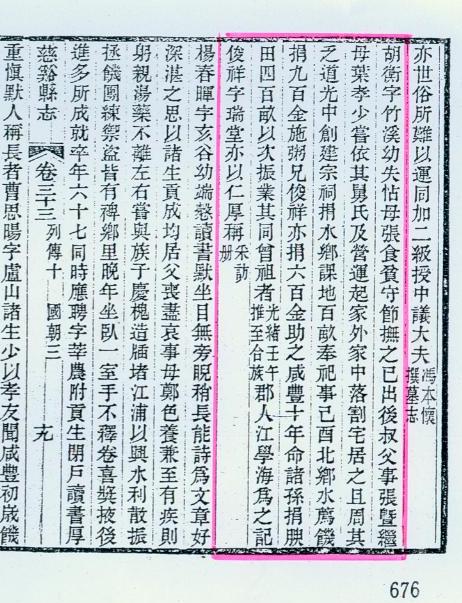 亦世俗所難以運同加二級授中議大夫馮本懷撰墓志
胡衡字竹溪幼失怙母張食貧守節撫之已出後叔父事張曁繼
母葉孝少嘗依其舅氏及營運起家外家中落割宅居之且周其
乏道光中創建宗祠捐水鄉課地百畝奉祀事己酉北鄉水薦饑
捐九百金施粥兄俊祥亦捐六百金助之咸豐十年命諸孫捐腴
田四百畝以次振業其同曾祖者光緒壬午推至合族郡人江學海爲之記
俊祥字瑞堂亦以仁厚稱采訪冊
楊春暉字亥谷幼端慤讀書默坐目無旁睨稍長能詩爲文章好
深湛之思以諸生貢成均居父喪盡哀事母鄭色養兼至有疾則
躬親湯藥不離左右嘗與族子慶槐造牐堵江浦以興水利散振
拯饑團練禦盜皆有裨鄉里晚年坐臥一室手不釋卷喜奬掖後
進多所成就卒年六十七同時應聘字莘農附貢生閉戶讀書厚
慈谿縣志 卷三十三 列傳十 國朝三 九
重愼默人稱長者曹思陽字盧山諸生少以孝友聞咸豐初歲饑
676